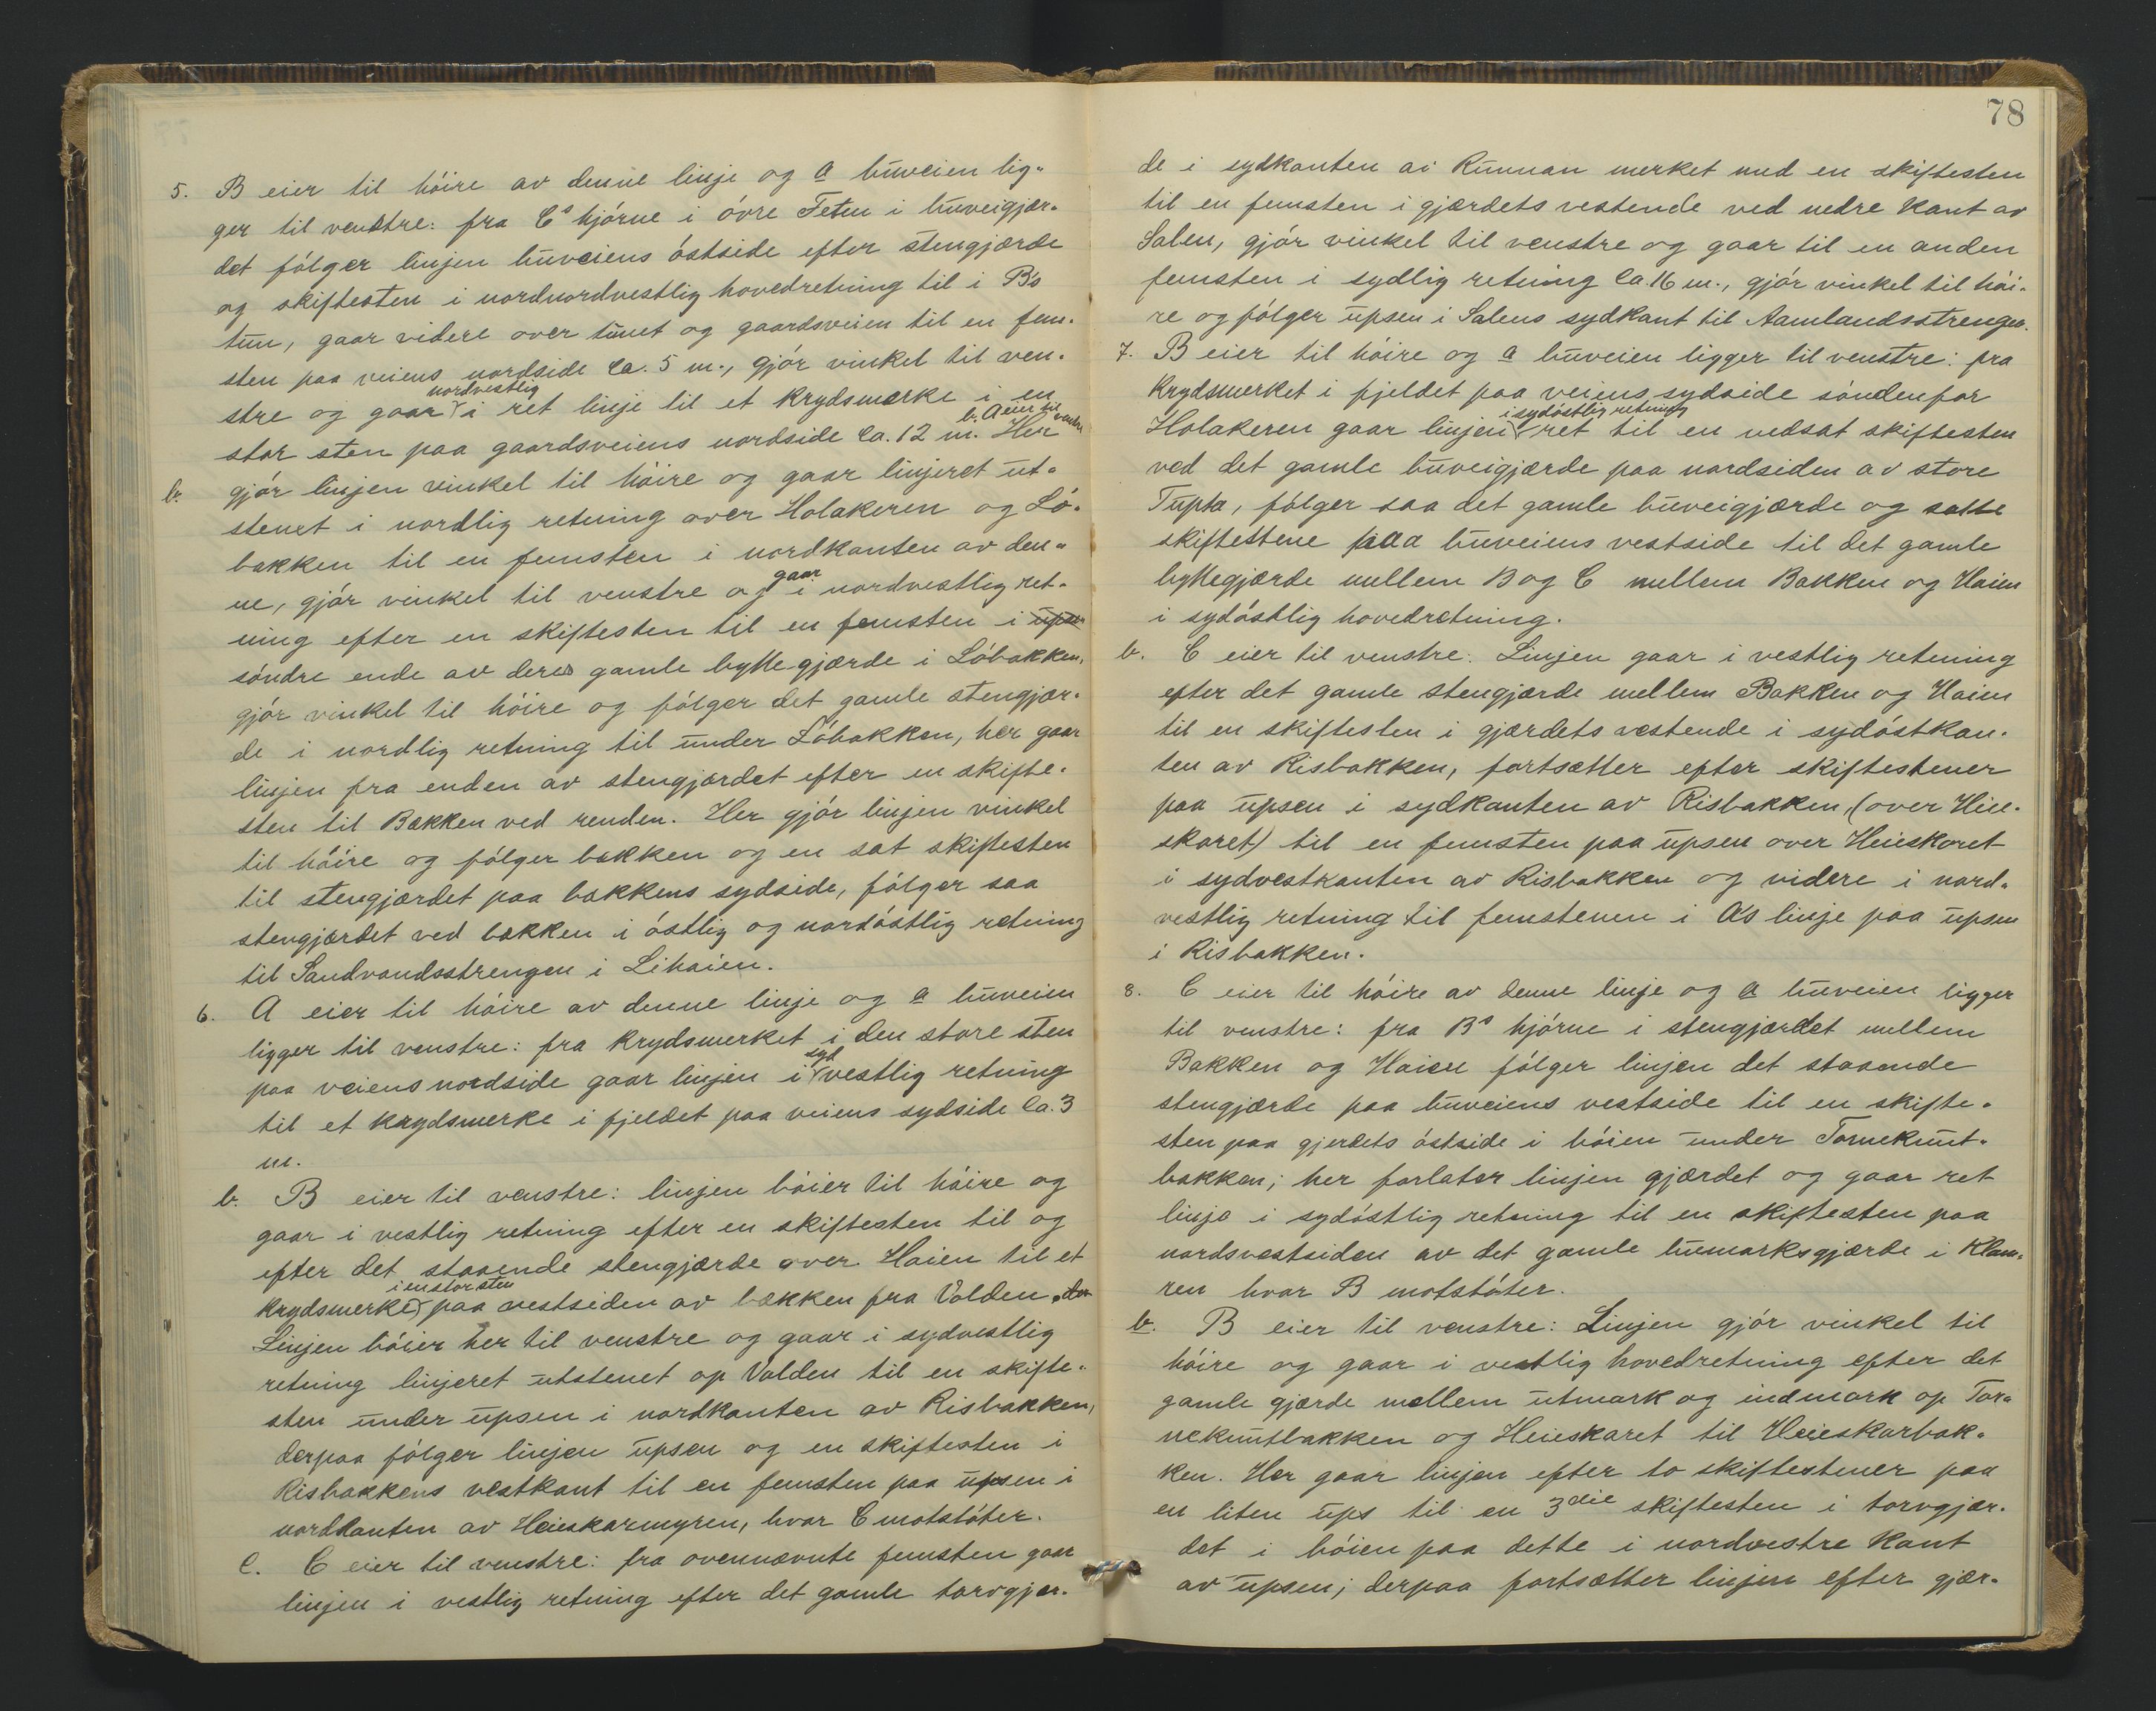 5. B eier til høire av denne linje og a buveien lig-
ger til venstre: fra C's hjørne i øvre Teten i buveigjær-
det følger linjen buveiens østside efter stengjærde
og skiftesten i nordnordvestlig hovedretning til i B's
tun, gaar videre over tunet og gaardsveien til en fem-
sten paa veiens nordside ca. 5 m., gjør vinkel til ven-
stre og gaar nordvestlig i ret linje til et krydsmerke i en
stor sten paa gaardsveiens nordside ca. 12 m. b. A eier til venstre Her
b. gjør linjen vinkel til høire og gaar linjeret ut-
stenet i nordlig retning over Holakeren og Lø-
bakken til en femsten i nordkanten av den-
ne, gjør vinkel til venstre og gaar i nordvestlig ret-
ning efter en skiftesten til en femsten i upsen
søndre ende av deres gamle byttegjærde i Løbakken,
gjør vinkel til høire og følger det gamle stengjær-
de i nordlig retning til under Løbakken, her gaar
linjen fra enden av stengjærdet efter en skifte-
sten til Bækken ved renden. Her gjør linjen vinkel
til høire og følger bækken og en sat skiftesten
til stengjærdet paa bækkens sydside, følger saa
stengjærdet ved bækken i østlig og nordøstlig retning
til Sandvandsstrengen i Lihaien.
6. A eier til høire av denne linje og a buveien
ligger til venstre: fra krydsmerket i den store sten
paa veiens nordside gaar linjen i sydvestlig retning
til et krydsmerke i fjeldet paa veiens sydside ca. 3
m.
b. B eier til venstre: linjen bøier til høire og
gaar i vestlig retning efter en skiftesten til og
efter det staaende stengjærde over Haien til et
krydsmerke i en stor sten paa vestsiden av bækken fra Volden.
Linjen bøier her til venstre og gaar i sydvestlig
retning linjeret utstenet op Volden til en skifte-
sten under upsen i nordkanten av Risbakken,
derpaa følger linjen upsen og en skiftesten i
Risbakkens vestkant til en femsten paa upsen i
nordkanten av Heieskarmyren, hvor C motstøter.
c. C eier til venstre: fra ovennævnte femsten gaar
linjen i vestlig retning efter det gamle torvgjær-
78
de i sydkanten av Runnan merket med en skiftesten
til en femsten i gjærdets vestende ved nedre kant av
Salen, gjør vinkel til venstre og gaar til en anden
femsten i sydlig retning ca. 16 m., gjør vinkel til høi-
re og følger upsen i Salens sydkant til Aamlandsstrengen.
7. B eier til høire og a buveien ligger til venstre: fra
krydsmerket i fjeldet paa veiens sydside søndenfor
Holakeren gaar linjen i sydøstlig retning ret til en nedsat skiftesten
ved det gamle buveigjærde paa nordsiden av store
Tupta, følger saa det gamle buveigjærde og satte
skiftestene paa buveiens vestside til det gamle
byttegjærde mellem B og C mellem Bakken og Haien
i sydøstlig hovedretning.
b. C eier til venstre. Linjen gaar i vestlig retning
efter det gamle stengjærde mellem Bakken og Haien
til en skiftesten i gjærdets vestende i sydøstkan-
ten av Risbakken, fortsætter efter skiftestener
paa upsen i sydkanten av Risbakken, (over Heie-
skaret) til en femsten paa upsen over Heieskaret
i sydvestkanten av Risbakken og videre i nord-
vestlig retning til femstenen i A's linje paa upsen
i Risbakken.
8. C eier til høire av denne linje og a buveien ligger
til venstre: fra B's hjørne i stengjærdet mellem
Bakken og Haien følger linjen det staaende
stengjærde paa buveiens vestside til en skifte-
sten paa gjerdets østside i bøien under Tornekunt-
bakken; her forlater linjen gjærdet og gaar ret
linje i sydøstlig retning til en skiftesten paa
nordsvestsiden av det gamle bumarksgjærde i Klam-
ren hvor B motstøter.
b. B eier til venstre: Linjen gjør vinkel til
høire og gaar i vestlig hovedretning efter det
gamle gjærde mellem utmark og indmark op Tor-
nekuntbakken og Heieskaret til Heieskarbak-
ken. Her gaar linjen efter to skiftestener paa
en liten ups til en 3die skiftesten i torvgjær-
det i bøien paa dette i nordvestre kant
av upsen; derpaa fortsætter linjen efter gjær-